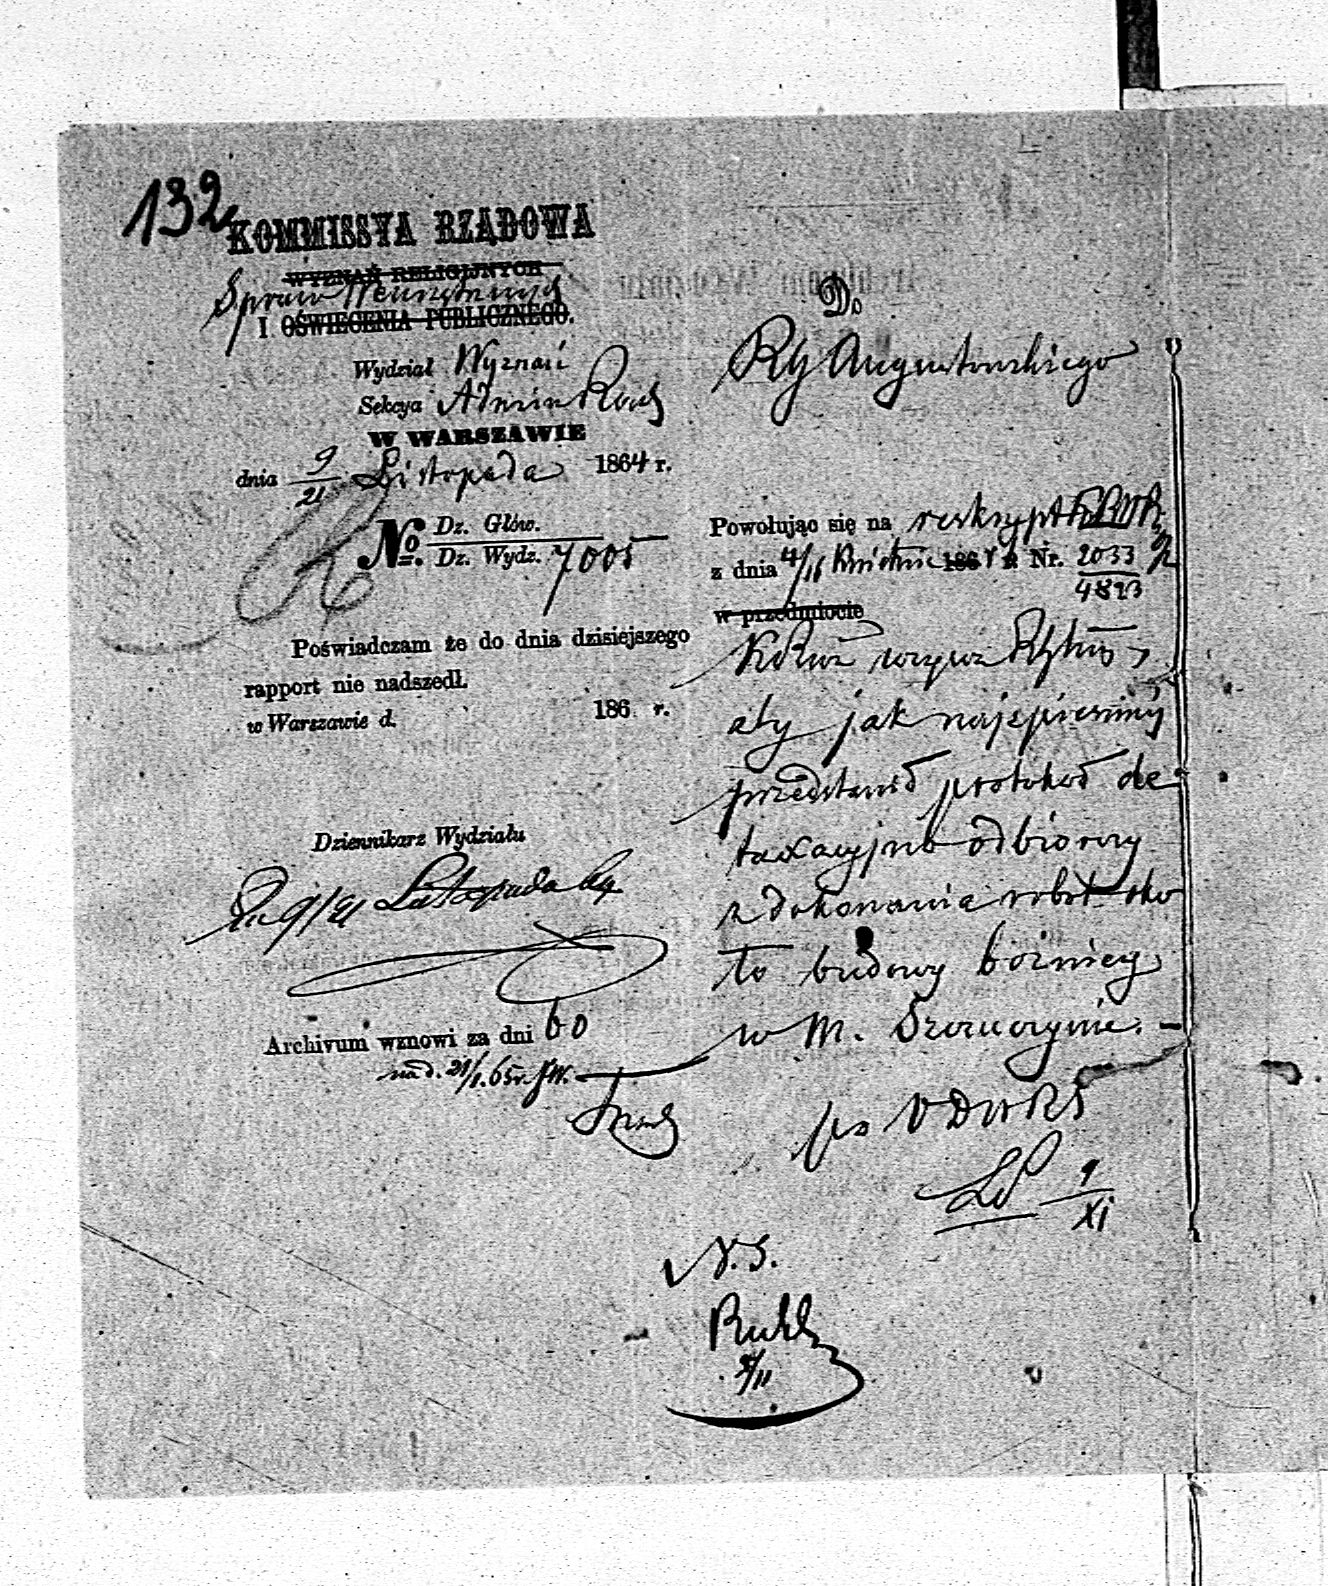 132
KOMMISSYA RZĄDOWA
WYZNAŃ RELIGIJNYCH
Spraw Wewnętrznych
I OŚWIECENIA PUBLICZNEGO.
Wydział Wyznań
Sekcya Admin
W WARSZAWIE
dnia 9/21 Listopada 1864 r.
No. Dz. Głów.
Dz. Wydz. 7005
Poświadczam że do dnia dzisiejszego
rapport nie nadszedł.
w Warszawie d. 186 r.
Dziennikarz Wydziału
9/21 Listopada
Archivum wznowi za dni 60
na d. 21/1. 65 r.
Do
RG Augustowskiego
Powołując się na reskrypt
z dnia 4/16 Kwietnia 186 r. Nr. 2033
4823
w przedmiocie
wzywa
aby jak najspieszniej
przedstawił protokół de
taxacyjno odbiorczy
z dokonania robót oko
ło budowy bóżnicy
w M. Szczuczynie.
9
XI
N. S.